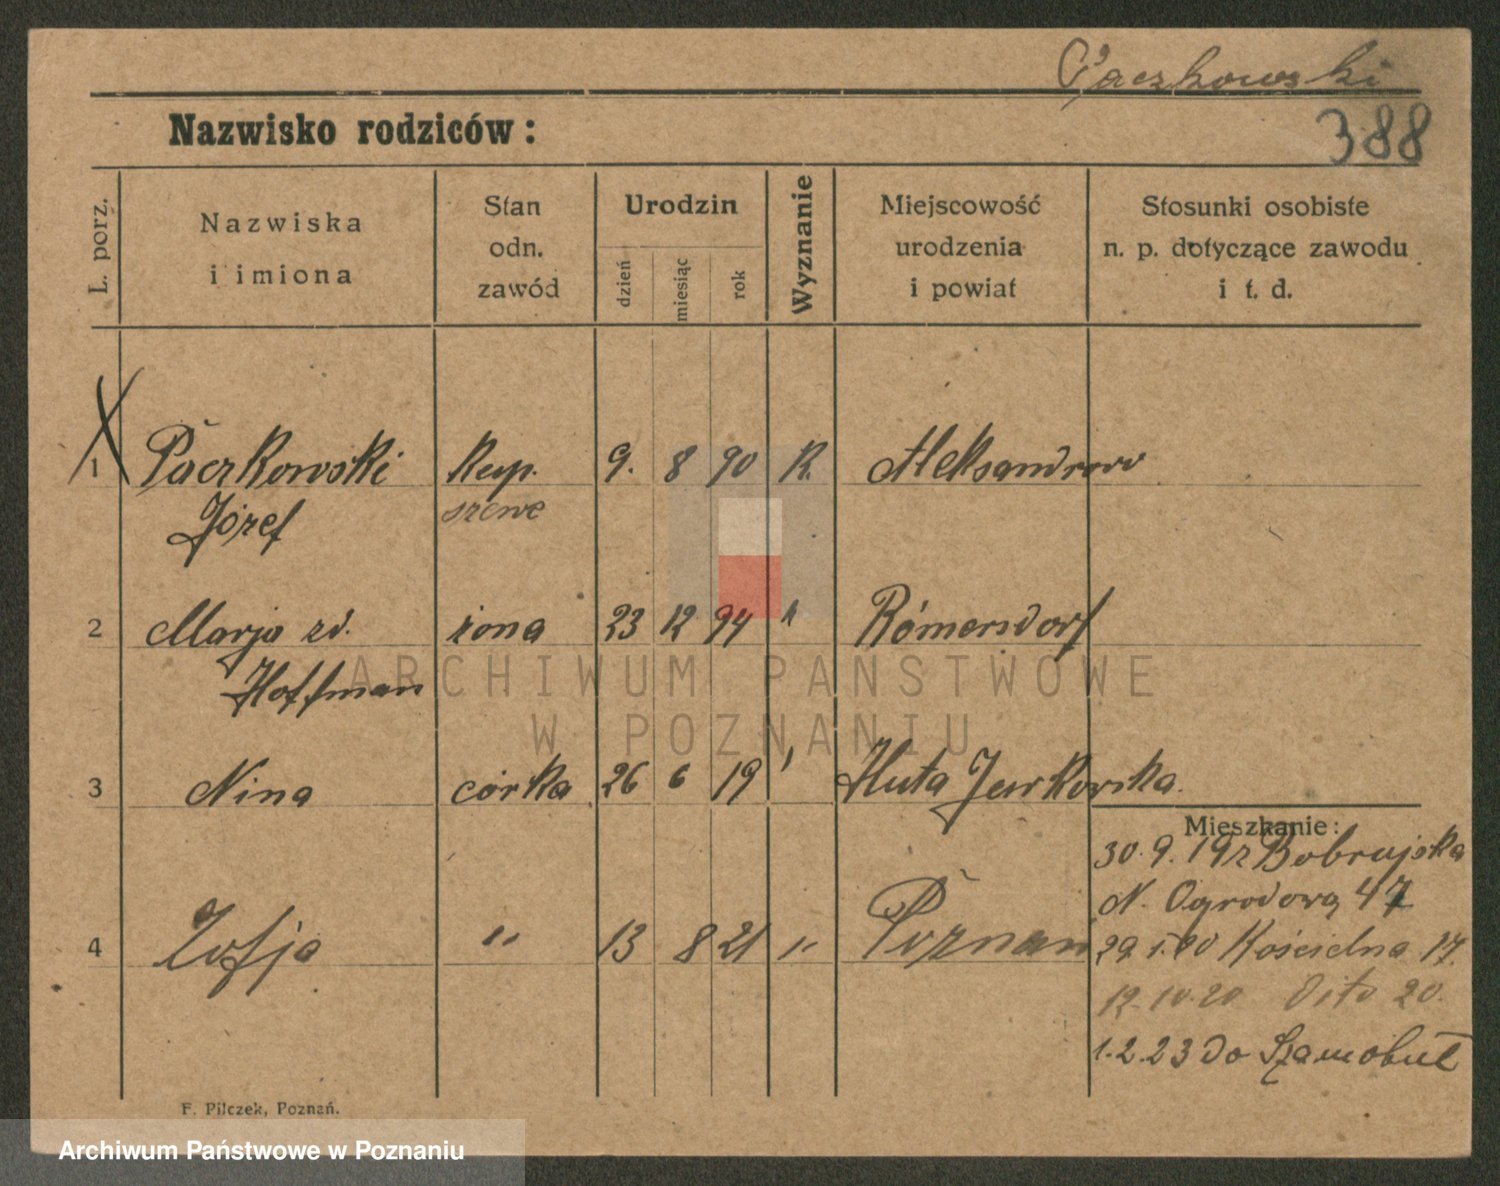 Paczkowski
388
Nazwisko rodziców:
L. porz.
Nazwiska
i imiona
Stan
odn.
zawód
Urodzin
dzień
miesiąc
rok
Wyznanie
Miejscowość
urodzenia
i powiat
Stosunki osobiste
n. p. dotyczące zawodu
i t. d.
1 Paczkowski 9. 8 90 K. Aleksandrow
Józef szewc
2 Marja zd. żona 23 12 94 " Römersdorf
Hoffman
3 Nina córka 26 6 19 " Huta Jerkowska
Mieszkanie:
30.9.19 z Bobrujska
N. Ogrodowa 47
4 Zofja " 13 8 21 " Poznań
29.1.20 Kościelna 17.
12.10.20 Dito 20.
1.2.23 do Szamotuł
F. Pilczek, Poznań.
ARCHIWUM PAŃSTWOWE
W POZNANIU
Archiwum Państwowe w Poznaniu